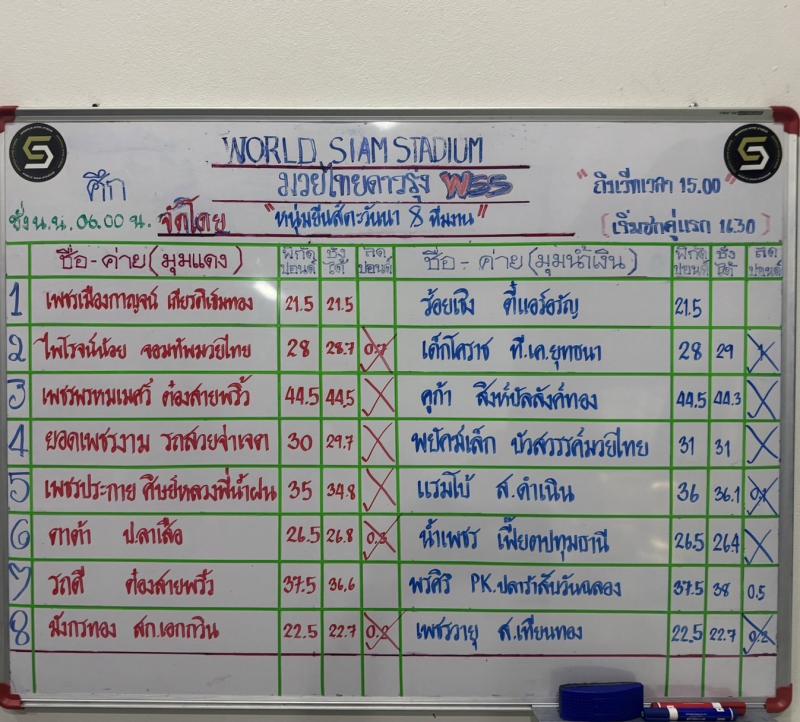 WORLD SIAM STADIUM
ศึก มวยไทยดาวรุ่ง WSS "ถึงเวทีเวลา 15.00"
ชั่ง น.น. 06.00 น. จัดโดย "หนุ่มยีนส์ตะวันนา 8 ทีมงาน" (เริ่มชกคู่แรก 16.30)
ชื่อ-ค่าย (มุมแดง) พิกัดปอนด์ ชั่งได้ ลดปอนด์ ชื่อ-ค่าย (มุมน้ำเงิน) พิกัดปอนด์ ชั่งได้ ลดปอนด์
1 เพชรเมืองกาญจน์ เกียรติเข้มทอง 21.5 21.5 ร้อยเชิง ตี๋แอร์อรัญ 21.5
2 ไพโรจน์น้อย จอมทัพมวยไทย 28 28.7 0.7 เด็กโคราช ที.เค.ยุทธนา 28 29 1
3 เพชรพรหมเมศวร์ ต๋องสายพริ้ว 44.5 44.5 คูก้า สิงห์บัลลังค์ทอง 44.5 44.3
4 ยอดเพชรงาม รถสวยจ่าเจต 30 29.7 พยัคฆ์เล็ก บัวสวรรค์มวยไทย 31 31
5 เพชรประกาย ศิษย์หลวงพี่น้ำฝน 35 34.8 แรมโบ้ ส.ดำเนิน 36 36.1 0.1
6 ดาต้า ป.ลาเสือ 26.5 26.8 0.3 น้ำเพชร เฟี้ยตปทุมธานี 26.5 26.4
7 รถดี ต๋องสายพริ้ว 37.5 36.6 พรศิริ PK.ปลาร้าสับวันฉลอง 37.5 38 0.5
8 มังกรทอง สก.เอกกวิน 22.5 22.7 0.2 เพชรวายุ ส.เทียนทอง 22.5 22.7 0.2